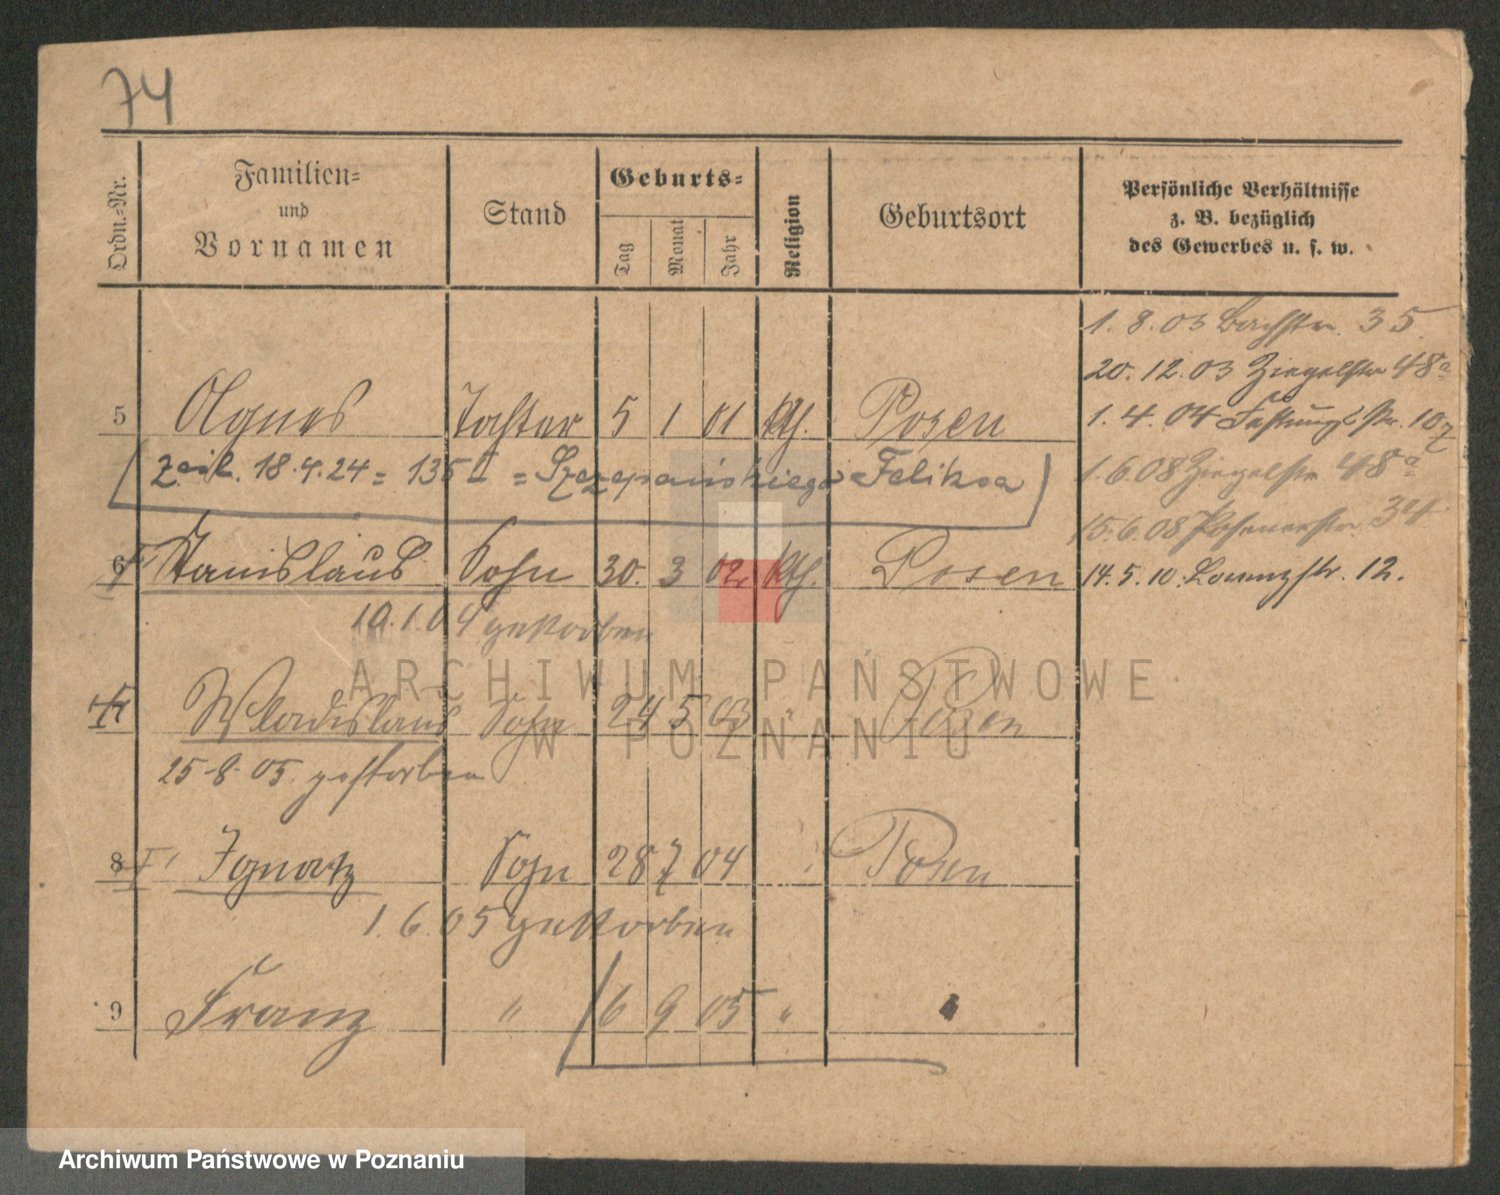 74
Ordn.-Nr.
Familien-
und
Vornamen
Stand
Geburts-
Tag
Monat
Jahr
Religion
Geburtsort
Persönliche Verhältnisse
z. B. bezüglich
des Gewerbes u. s. w.
1. 8. 03 Bachstr. 35
20. 12. 03 Ziegelstr 48a
1. 4. 04 Festungsstr. 10
1. 6. 08 Ziegelstr 48a
15. 6. 08 Posenerstr 34
14. 5. 10. 12.
5 Agnes Tochter 5 1 01 kth. Posen
18.4.24 = = Szczepańskiego Feliksa
6 Stanislaus Sohn 30. 3 02 kth. Posen
19. 1. 04 gestorben
7 Wladislaus Sohn 24 5 03 " Posen
25-8-05. gestorben
8 Ignatz Sohn 28 7 04 " Posen
1. 6. 05 gestorben
9 Franz " 6 9 05 " "
ARCHIWUM PAŃSTWOWE
W POZNANIU
Archiwum Państwowe w Poznaniu